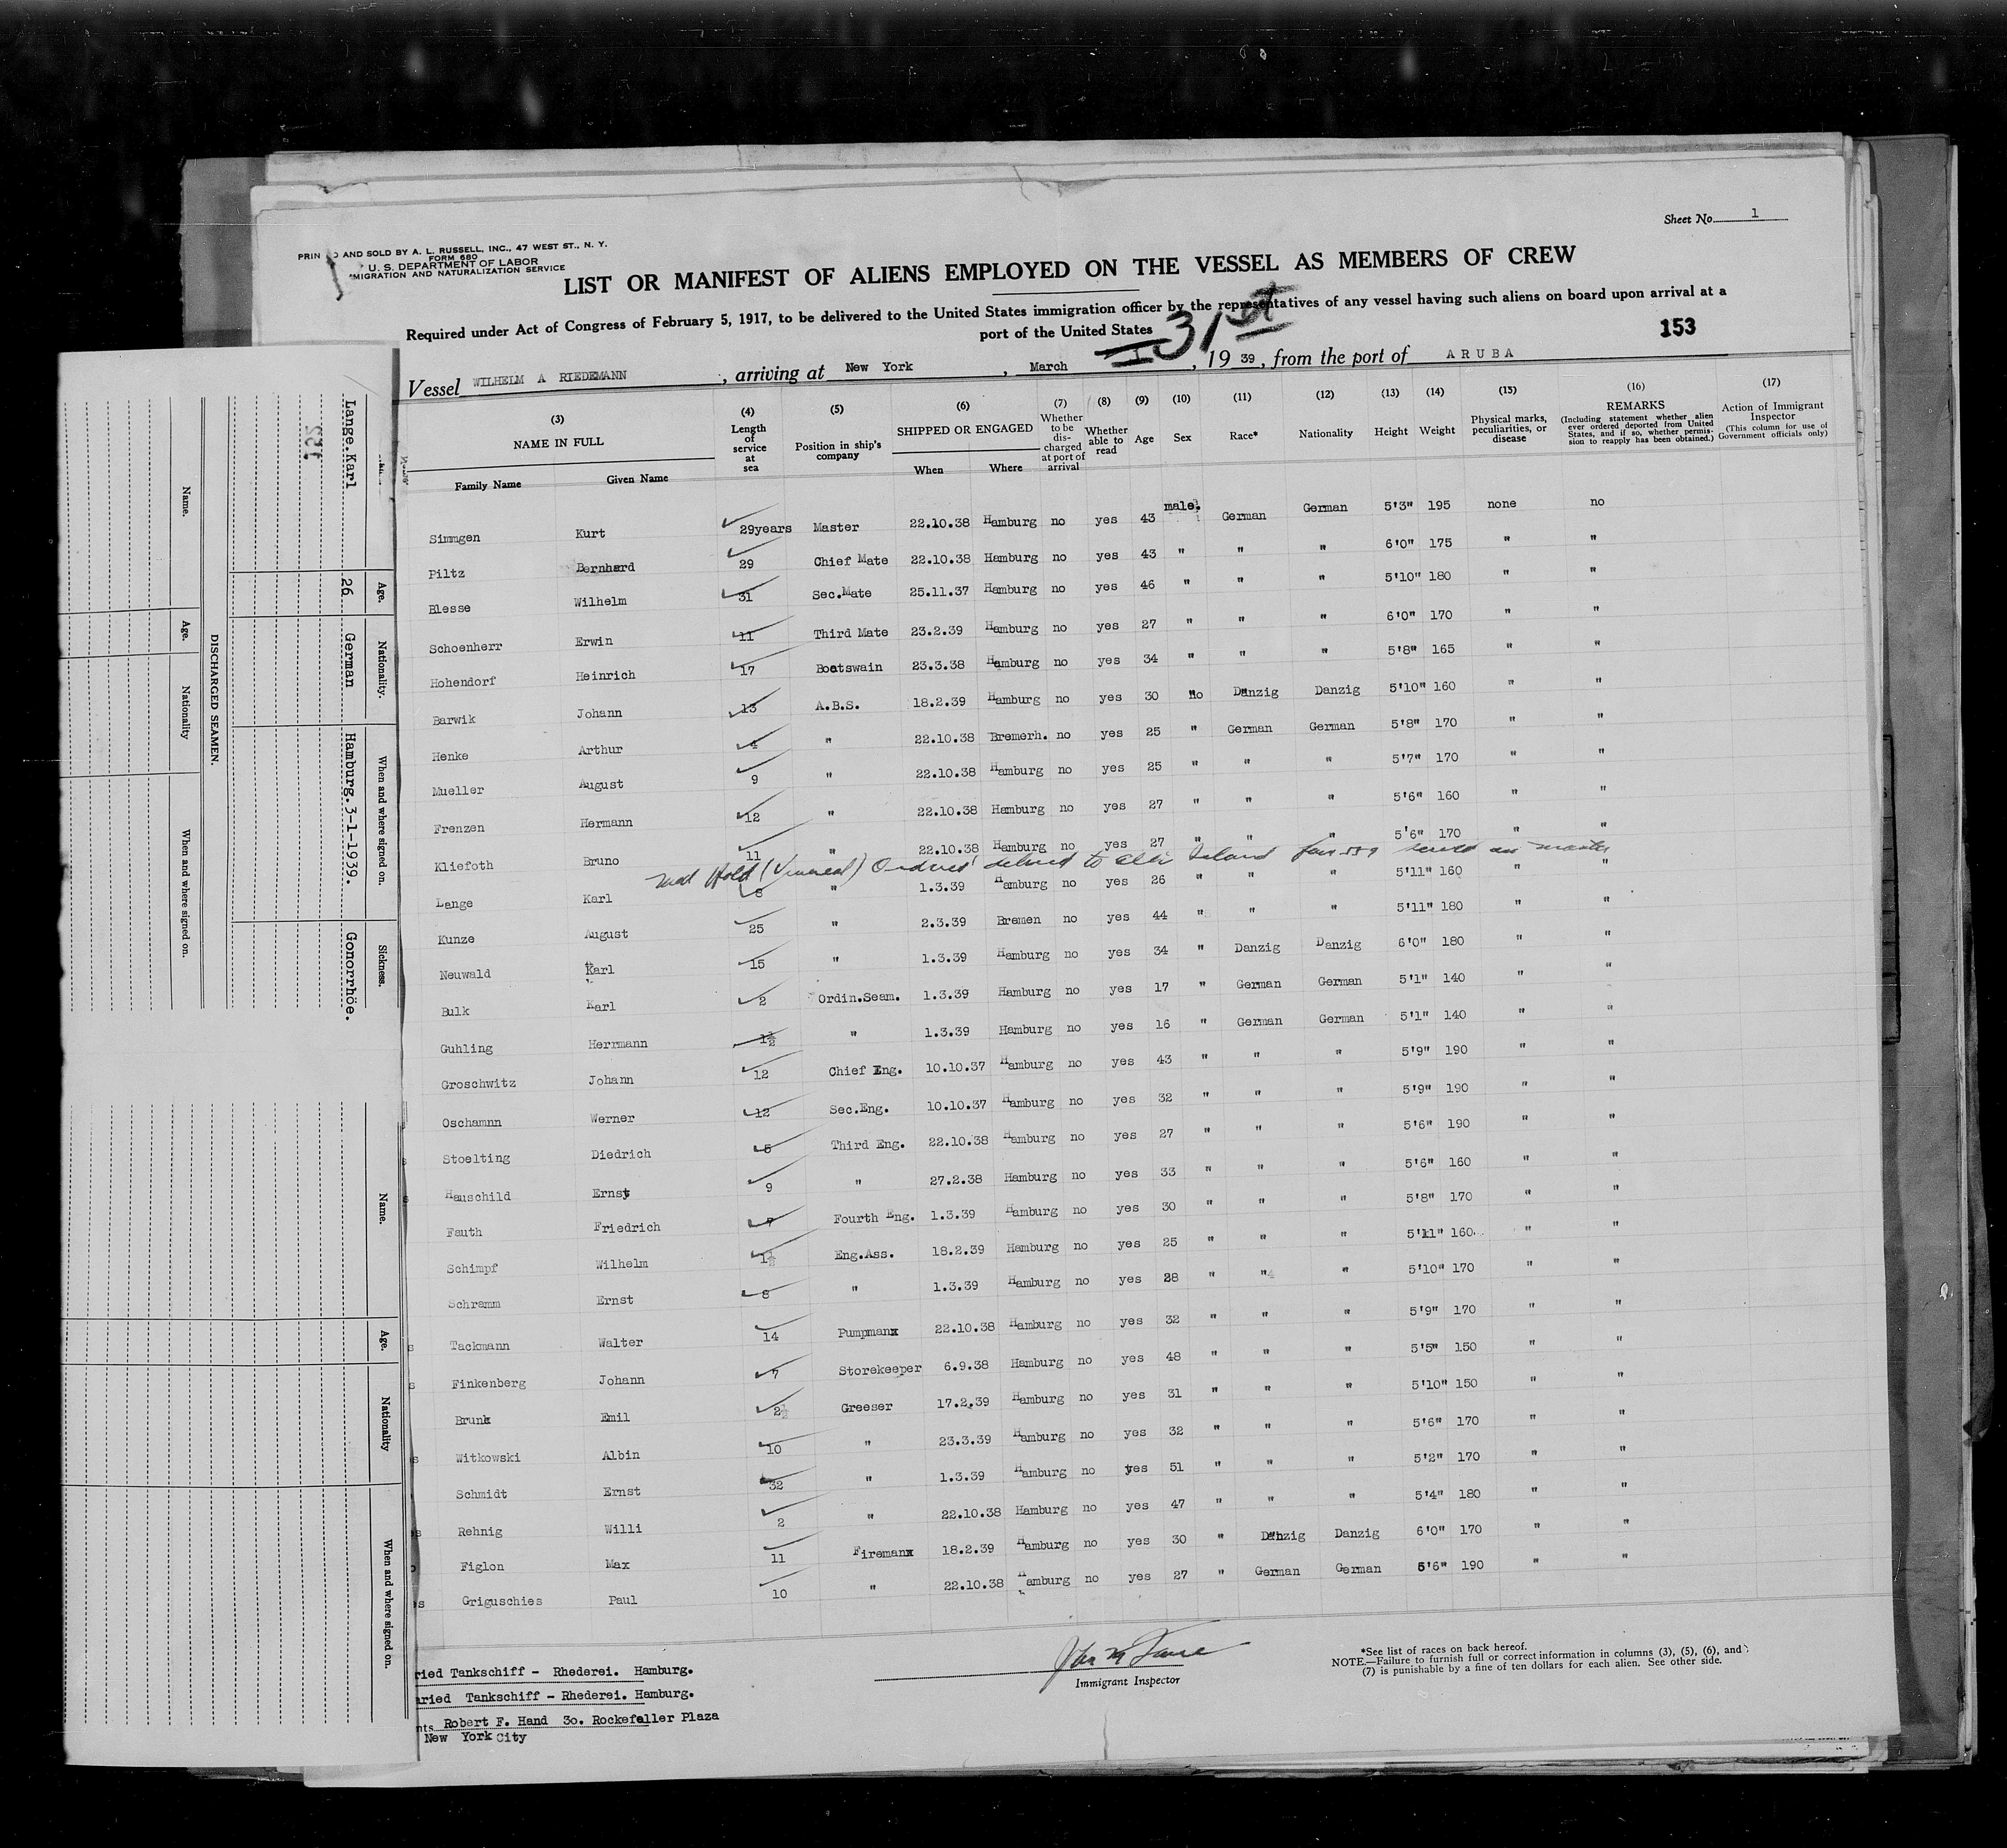 Sheet No. 1
AND SOLD BY A. L. RUSSELL, INC., 47 WEST ST., N. Y.
FORM 680
U. S. DEPARTMENT OF LABOR
MIGRATION AND NATURALIZATION SERVICE
LIST OR MANIFEST OF ALIENS EMPLOYED ON THE VESSEL AS MEMBERS OF CREW
Required under Act of Congress of February 5, 1917, to be delivered to the United States immigration officer by the representatives of any vessel having such aliens on board upon arrival at a
port of the United States
153
Vessel WILHELM A RIEDEMANN, arriving at New York, March 31st, 1939, from the port of ARUBA
(3) (4) (5) (6) (7) (8) (9) (10) (11) (12) (13) (14) (15) (16) (17)
NAME IN FULL
Family Name Given Name
Length of service at sea
Position in ship's company
SHIPPED OR ENGAGED
When Where
Whether to be discharged at port of arrival
Whether able to read
Age
Sex
Race*
Nationality
Height
Weight
Physical marks, peculiarities, or disease
REMARKS
(Including statement whether alien ever ordered deported from United States, and if so, whether permission to reapply has been obtained.)
Action of Immigrant Inspector
(This column for use of Government officials only)
Simmgen Kurt 29years Master 22.10.38 Hamburg no yes 43 male. German German 5'3" 195 none no
Piltz Bernhard 29 Chief Mate 22.10.38 Hamburg no yes 43 " " " 6'0" 175 " "
Blesse Wilhelm 31 Sec.Mate 25.11.37 Hamburg no yes 46 " " " 5'10" 180 " "
Schoenherr Erwin 11 Third Mate 23.2.39 Hamburg no yes 27 " " " 6'0" 170 " "
Hohendorf Heinrich 17 Boatswain 23.3.38 Hamburg no yes 34 " " " 5'8" 165 " "
Barwik Johann 13 A.B.S. 18.2.39 Hamburg no yes 30 no Danzig Danzig 5'10" 160 " "
Henke Arthur 4 " 22.10.38 Bremerh. no yes 25 " German German 5'8" 170 " "
Mueller August 9 " 22.10.38 Hamburg no yes 25 " " " 5'7" 170 " "
Frenzen Hermann 12 " 22.10.38 Hamburg no yes 27 " " " 5'6" 160 " "
Kliefoth Bruno 11 " 22.10.38 Hamburg no yes 27 " " " 5'6" 170 " "
Hold ( ) Ordered to Ellis Island served on master
Lange Karl 8 " 1.3.39 Hamburg no yes 26 " " " 5'11" 160 " "
Kunze August 25 " 2.3.39 Bremen no yes 44 " " " 5'11" 180 " "
Neuwald Karl 15 " 1.3.39 Hamburg no yes 34 " Danzig Danzig 6'0" 180 " "
Bulk Karl 2 Ordin.Seam. 1.3.39 Hamburg no yes 17 " German German 5'1" 140 " "
Guhling Herrmann 1½ " 1.3.39 Hamburg no yes 16 " German German 5'1" 140 " "
Groschwitz Johann 12 Chief Eng. 10.10.37 Hamburg no yes 43 " " " 5'9" 190 " "
Oschamnn Werner 12 Sec.Eng. 10.10.37 Hamburg no yes 32 " " " 5'9" 190 " "
Stoelting Diedrich 5 Third Eng. 22.10.38 Hamburg no yes 27 " " " 5'6" 190 " "
Hauschild Ernst 9 " 27.2.38 Hamburg no yes 33 " " " 5'6" 160 " "
Fauth Friedrich 7 Fourth Eng. 1.3.39 Hamburg no yes 30 " " " 5'8" 170 " "
Schimpf Wilhelm 1½ Eng.Ass. 18.2.39 Hamburg no yes 25 " " " 5'11" 160. " "
Schramm Ernst 8 " 1.3.39 Hamburg no yes 28 " " " 5'10" 170 " "
Tackmann Walter 14 Pumpmanx 22.10.38 Hamburg no yes 32 " " " 5'9" 170 " "
Finkenberg Johann 7 Storekeeper 6.9.38 Hamburg no yes 48 " " " 5'5" 150 " "
Brunk Emil 2½ Greeser 17.2.39 Hamburg no yes 31 " " " 5'10" 150 " "
Witkowski Albin 10 " 23.3.39 Hamburg no yes 32 " " " 5'6" 170 " "
Schmidt Ernst 32 " 1.3.39 Hamburg no yes 51 " " " 5'2" 170 " "
Rehnig Willi 2 " 22.10.38 Hamburg no yes 47 " " " 5'4" 180 " "
Figlon Max 11 Firemanx 18.2.39 Hamburg no yes 30 " Danzig Danzig 6'0" 170 " "
Griguschies Paul 10 " 22.10.38 Hamburg no yes 27 " German German 5'6" 190 " "
ried Tankschiff - Rhederei. Hamburg.
aried Tankschiff - Rhederei. Hamburg.
nts Robert F. Hand 3o. Rockefeller Plaza
New York City
Immigrant Inspector
*See list of races on back hereof.
NOTE.—Failure to furnish full or correct information in columns (3), (5), (6), and
(7) is punishable by a fine of ten dollars for each alien. See other side.
Age. Nationality. When and where signed on. Sickness.
Lange.Karl 26 German Hamburg.3-1-1939. Gonorrhöe.
125
DISCHARGED SEAMEN.
Name. Age. Nationality When and where signed on.
Name. Age. Nationality When and where signed on.